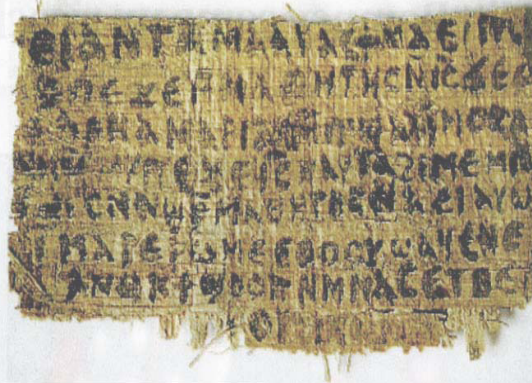 ⲉⲓ ⲁⲛ ⲧⲁⲙⲁⲁⲩ ⲁⲥϯ ⲛⲁⲉⲓ ⲡⲱ
ⲡⲉϫⲉ ⲙⲙⲁⲑⲏⲧⲏⲥ ⲛⲓ̅ⲥ̅ ϫⲉ ⲥ
ⲁⲣⲛⲁ ⲙⲁⲣⲓⲁⲙ ⲙⲡϣⲁ ⲙⲙⲟⲥ ⲁ
ⲡⲉϫⲉ ⲓ̅ⲥ̅ ⲛⲁⲩ ⲧⲁϩⲓⲙⲉ ⲙⲛ
ⲥⲛⲁϣⲣⲙⲁⲑⲏⲧⲏⲥ ⲛⲁⲉⲓ ⲁⲩⲱ
ⲓ ⲙⲁⲣⲉⲣⲱⲙⲉ ⲉⲑⲟⲟⲩ ϣⲁϥⲉⲛⲉ
ⲁⲛⲟⲕ ϯϣⲟⲟⲡ ⲛⲙⲙⲁⲥ ⲉⲧⲃⲉ ⲡ